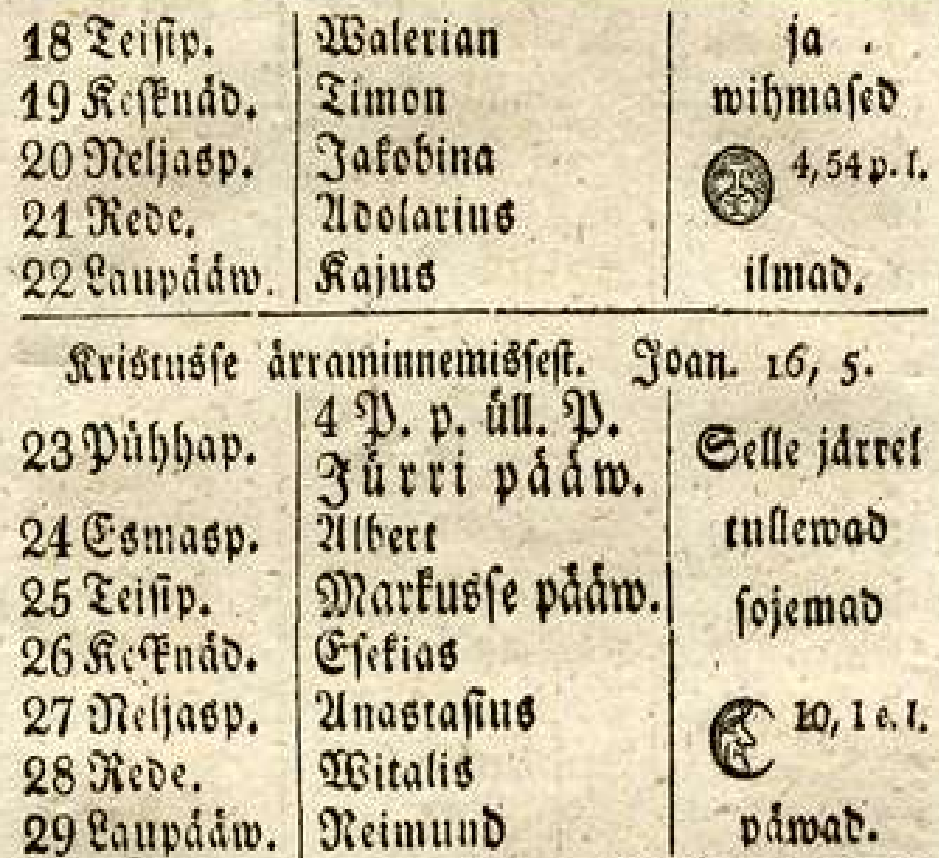 18 Teisip. Walerian ja
19 Kesknäd. Timon wihmased
20 Neljasp. Jakobina 4, 54 p. l.
21 Rede. Adolarius
22 Laupääw. Kajus ilmad.
Kristusse ärraminnemissest. Joan. 16, 5.
4 P. p. üll. P.
23 Pühhap. Jürri pääw. Selle järrel
24 Esmasp. Albert tullewad
25 Teisip. Markusse pääw. sojemad
26 Kesknäd. Esekias
27 Neljasp. Anastasius 10, 1 e. l.
28 Rede. Witalis
29 Laupääw. Reimund päwad.